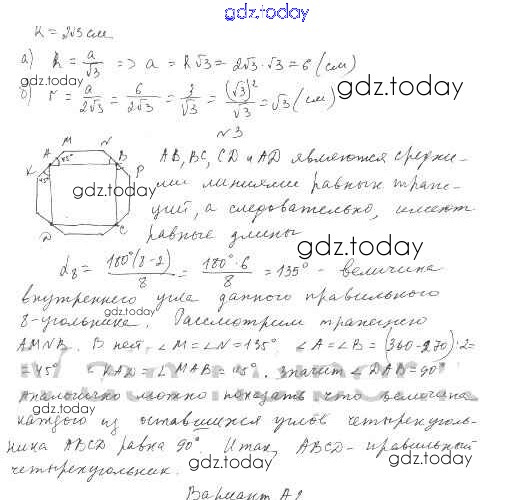 gdz.today
R = 2√3 см
а) R = a/√3 => a = R√3 = 2√3·√3 = 6 (см)
gdz.today
gdz.today
б) r = a/2√3 = 6/2√3 = 3/√3 = (√3)²/√3 = √3 (см)
№3
M N
K A 45° B P
45°
D C
gdz.today
AB, BC, CD и AD являются средни-
ми линиями равных трапе-
ций, а следовательно, имеют
равные длины
gdz.today
α₈ = 180°(8-2)/8 = 180°·6/8 = 135° - величина
внутреннего угла данного правильного
gdz.today
8-угольника. Рассмотрим трапецию
AMNB. В ней ∠M = ∠N = 135° ∠A = ∠B = (360-270):2 =
= 45° ∠KAD = ∠MAB = 45°. Значит ∠DAB = 90°
Аналогично можно показать что величина
gdz.today
каждого из оставшихся углов четырехуголь-
ника ABCD равна 90°. Итак, ABCD - правильный
gdz.today
четырехугольник.
gdz.today
Вариант А2